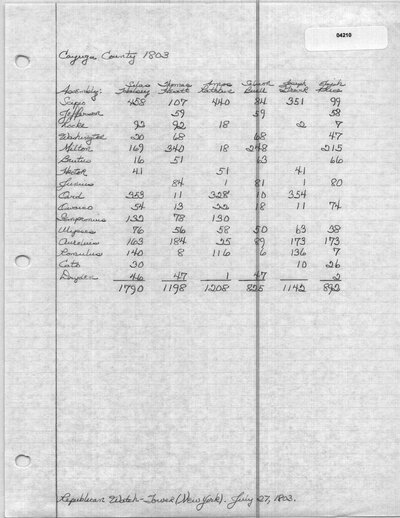 04210
Cayuga County 1803
Silas Thomas Amos Salmon Joseph
Assembly: Halsey Hewitt Rathbun Buell Grant
Scipio 458 107 440 84 351 99
Jefferson 59 59 58
Locke 92 92 18 2 7
Washington 20 68 68 47
Milton 169 340 18 248 215
Brutus 16 51 63 66
Hector 41 51 41
Junius 84 1 81 1 80
Ovid 353 11 328 10 354
Owasco 54 13 22 18 11 74
Sempronius 132 78 130
Ulysses 76 56 58 50 63 38
Aurelius 163 184 25 89 173 173
Romulus 140 8 116 6 136 7
Cato 30 10 26
Dryden 46 47 1 47 2
1790 1198 1208 825 1142 892
Republican Watch-Tower (New York). July 27, 1803.